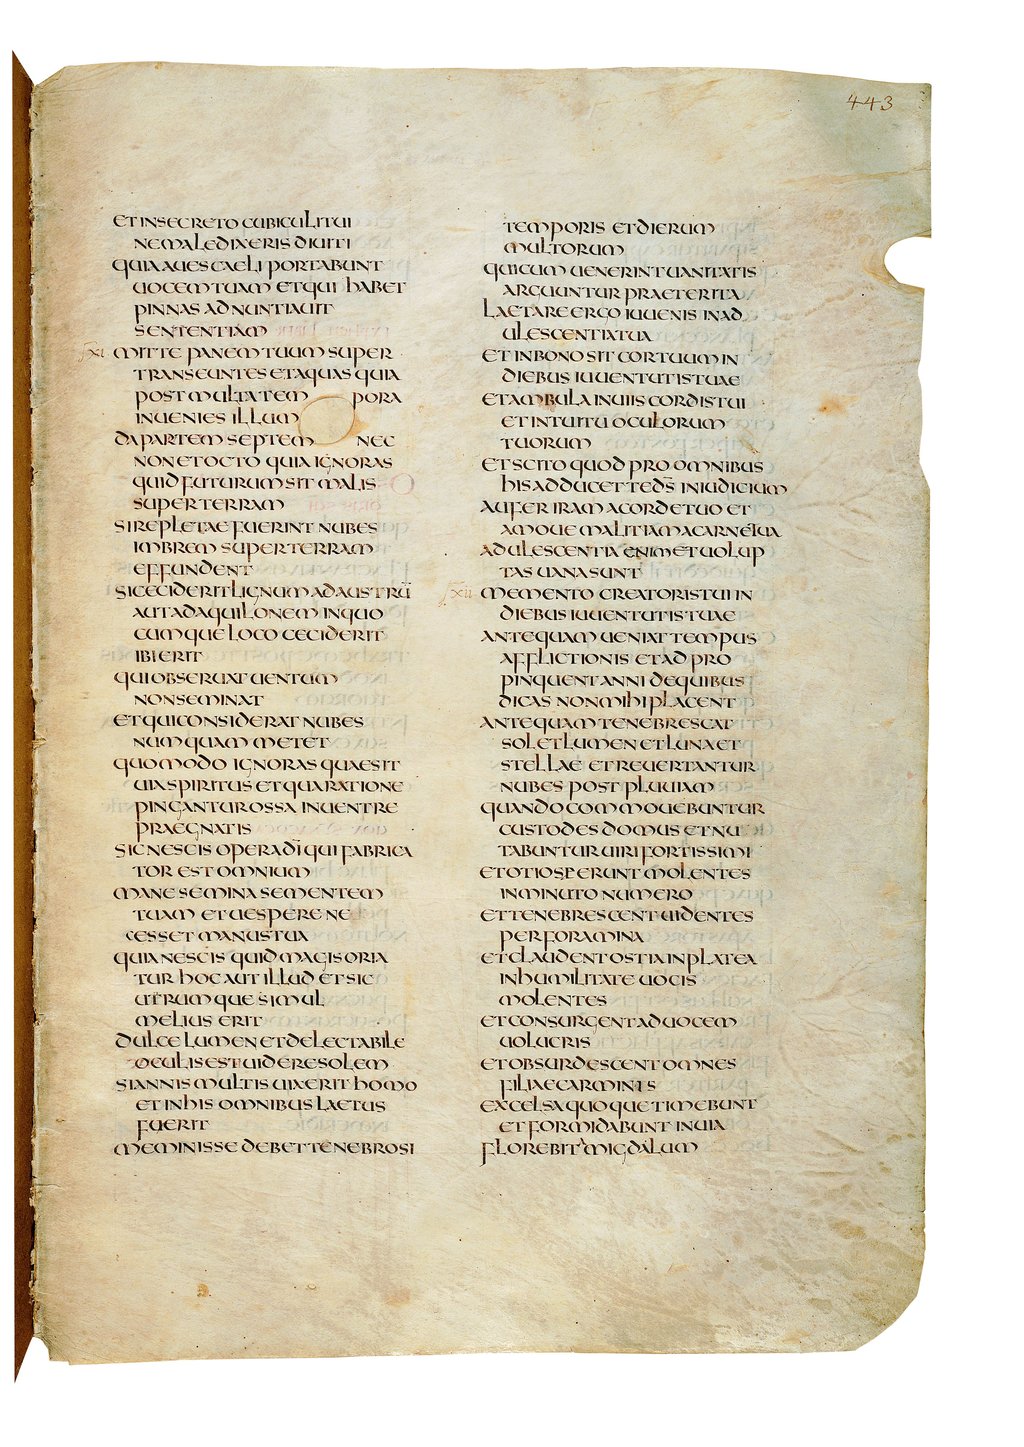 443
ET IN SECRETO CUBICULI TUI
NE MALEDIXERIS DIUITI
QUIA AUES CAELI PORTABUNT
UOCEM TUAM ET QUI HABET
PINNAS ADNUNTIAUIT
SENTENTIAM
XI MITTE PANEM TUUM SUPER
TRANSEUNTES ET AQUAS QUIA
POST MULTA TEM PORA
INUENIES ILLUM
DA PARTEM SEPTEM NEC
NON ET OCTO QUIA IGNORAS
QUID FUTURUM SIT MALIS
SUPER TERRAM
SI REPLETAE FUERINT NUBES
IMBREM SUPER TERRAM
EFFUNDENT
SI CECIDERIT LIGNUM AD AUSTRŪ
AUT AD AQUILONEM IN QUO
CUMQUE LOCO CECIDERIT
IBI ERIT
QUI OBSERUAT UENTUM
NON SEMINAT
ET QUI CONSIDERAT NUBES
NUMQUAM METET
QUOMODO IGNORAS QUAE SIT
UIA SPIRITUS ET QUA RATIONE
PINGANTUR OSSA IN UENTRE
PRAEGNATIS
SIC NESCIS OPERA DĪ QUI FABRICA
TOR EST OMNIUM
MANE SEMINA SEMENTEM
TUAM ET UESPERE NE
CESSET MANUS TUA
QUIA NESCIS QUID MAGIS ORIA
TUR HOC AUT ILLUD ET SI C
UTRUMQUE SIMUL
MELIUS ERIT
DULCE LUMEN ET DELECTABILE
OCULIS EST UIDERE SOLEM
SI ANNIS MULTIS UIXERIT HOMO
ET IN HIS OMNIBUS LAETUS
FUERIT
MEMINISSE DEBET TENEBROSI
TEMPORIS ET DIERUM
MULTORUM
QUI CUM UENERINT UANITATIS
ARGUUNTUR PRAETERITA
LAETARE ERGO IUUENIS IN AD
ULESCENTIA TUA
ET IN BONO SIT COR TUUM IN
DIEBUS IUUENTUTIS TUAE
ET AMBULA IN UIIS CORDIS TUI
ET INTUITU OCULORUM
TUORUM
ET SCITO QUOD PRO OMNIBUS
HIS ADDUCET TE D̄S IN IUDICIUM
AUFER IRAM A CORDE TUO ET
AMOUE MALITIAM A CARNE TUA
ADULESCENTIA ENIM ET UOLUP
TAS UANA SUNT
XII MEMENTO CREATORIS TUI IN
DIEBUS IUUENTUTIS TUAE
ANTEQUAM UENIAT TEMPUS
AFFLICTIONIS ET ADPRO
PINQUENT ANNI DE QUIBUS
DICAS NON MIHI PLACENT
ANTEQUAM TENEBRESCAT
SOL ET LUMEN ET LUNA ET
STELLAE ET REUERTANTUR
NUBES POST PLUUIAM
QUANDO COMMOUEBUNTUR
CUSTODES DOMUS ET NU
TABUNTUR UIRI FORTISSIMI
ET OTIOSE ERUNT MOLENTES
IN MINUTO NUMERO
ET TENEBRESCENT UIDENTES
PER FORAMINA
ET CLAUDENT OSTIA IN PLATEA
IN HUMILITATE UOCIS
MOLENTES
ET CONSURGENT AD UOCEM
UOLUCRIS
ET OBSURDESCENT OMNES
FILIAE CARMINIS
EXCELSA QUOQUE TIMEBUNT
ET FORMIDABUNT IN UIA
FLOREBIT MIGDALUM